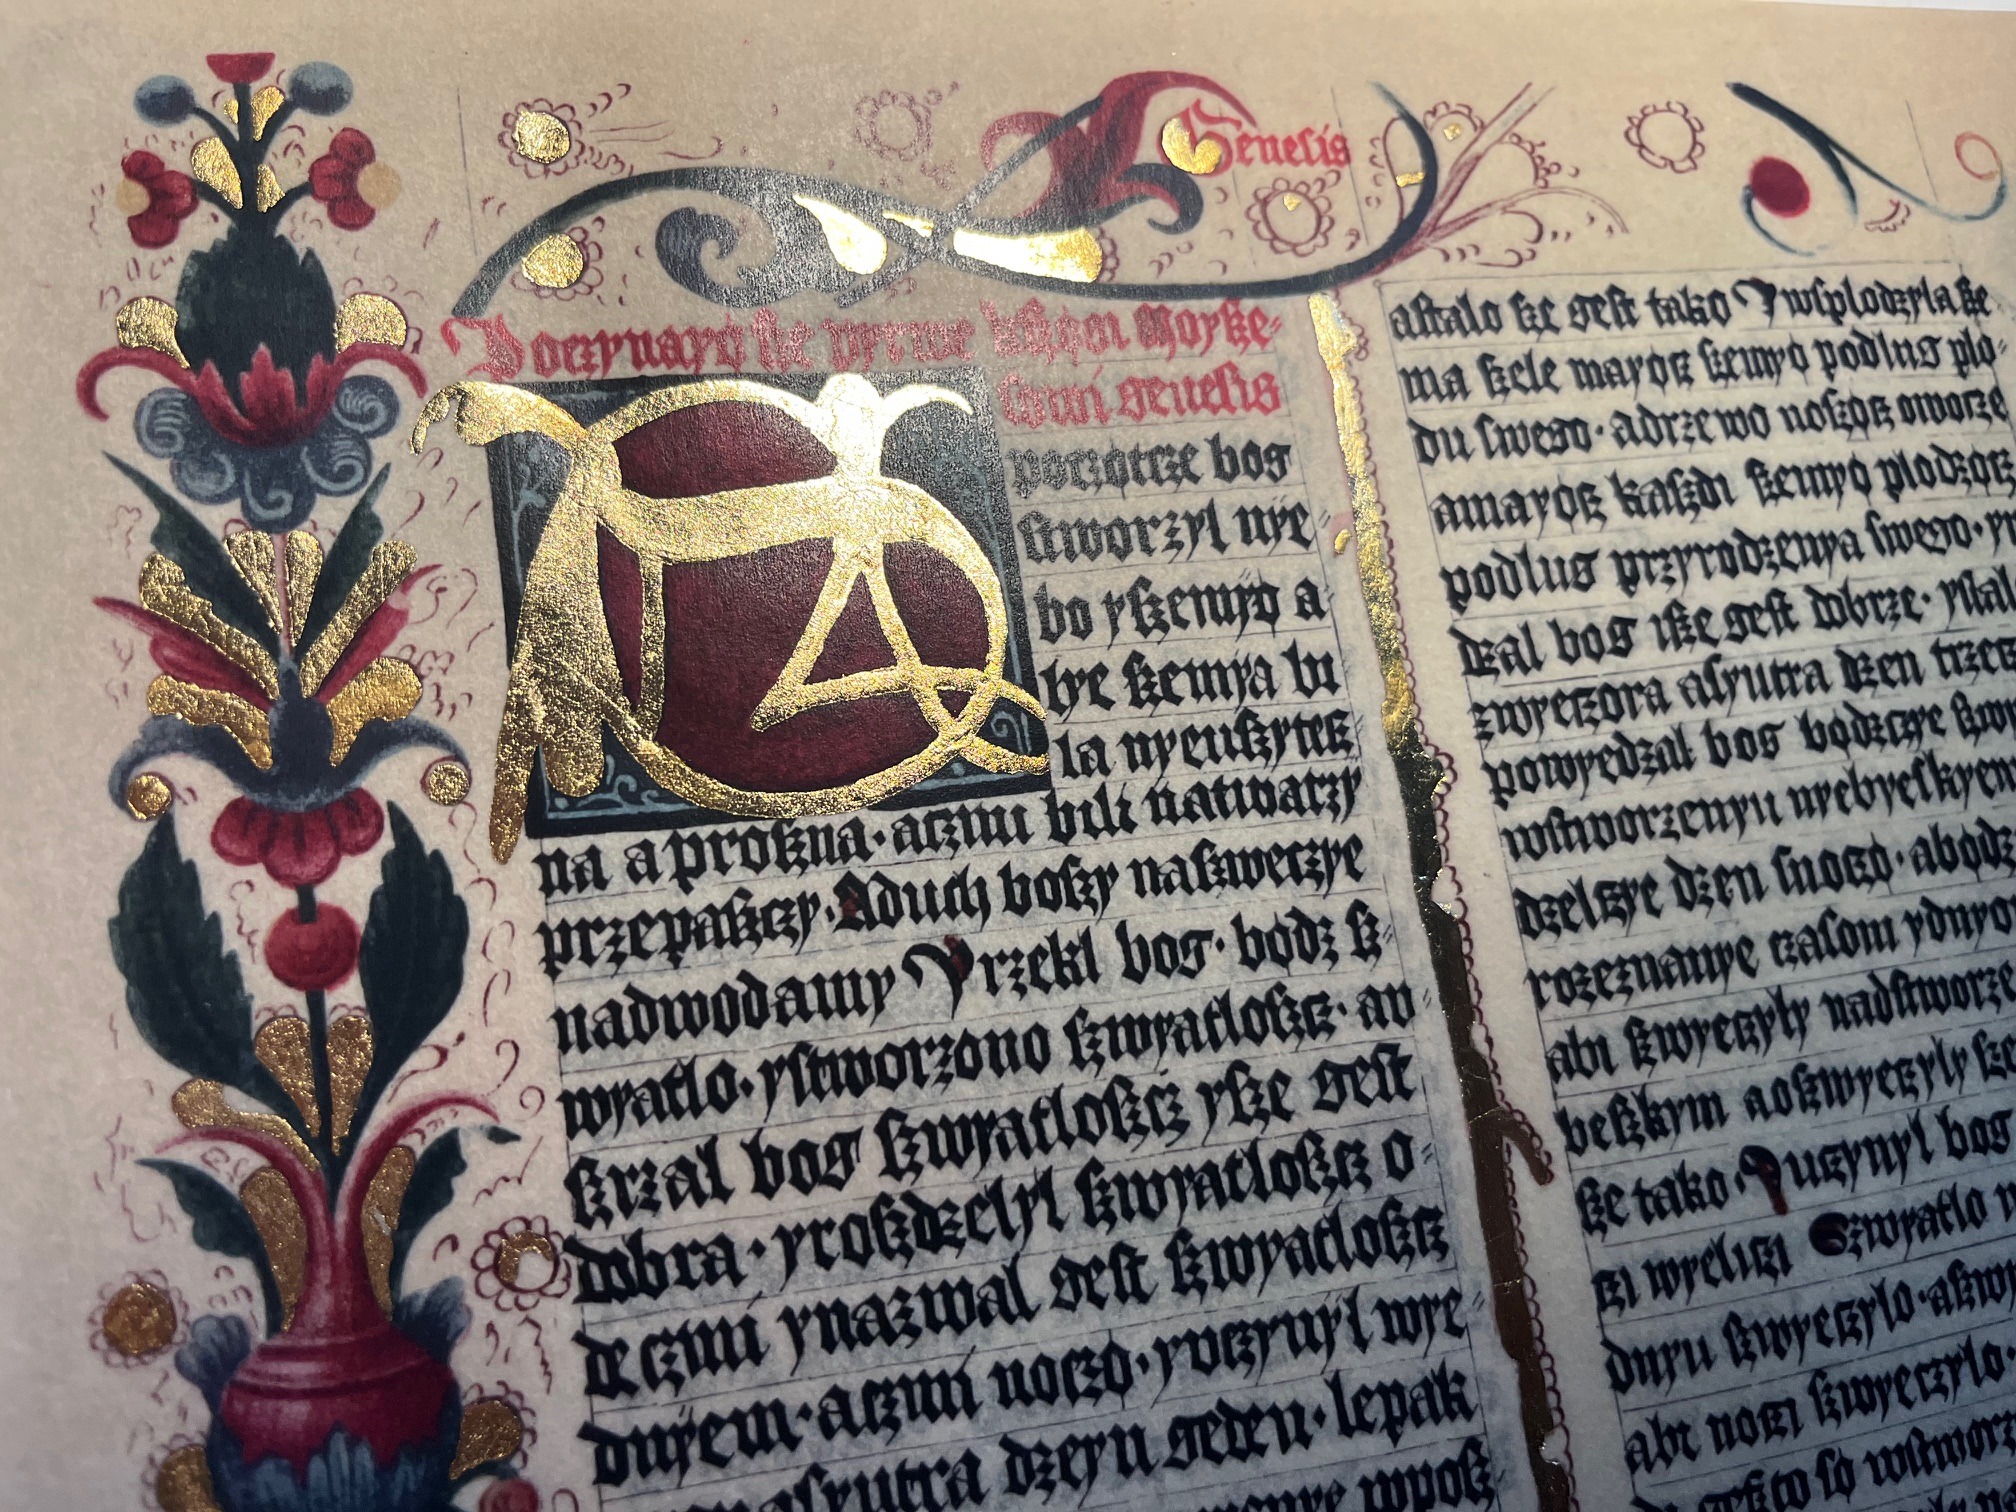 Genesis
Poczynayø ſze pyrwe kſzøgi Moyſze-
ſzowi geneſis
poczøtcze bog
ſtworzyl nÿe-
bo yſzemÿø a
lye ſzemÿa bi
la nyeuſzytecz
na a proſzna · aczmi bili natwarzy
przepaſczy · Aduch boſzy naſzweczye
nadwodamy Yrzekl bog · bødz ſz-
wyatlo · yſtworzono ſzwyatloſzcz · au
ſzrzal bog ſzwyatloſzcz yſze geſt
dobra · yroſzdzelyl ſzwyatloſzcz o-
de czmi ynazwal geſt ſzwyatloſzcz
dnyem · aczmi noczø · yuczynÿl wye
aſyutra dzeyn geden · lepak
aſtalo ſze geſt tako Ywſplodzyla ſze
ma ſzele mayøcz ſzemyø podlug plo-
du ſwego · adrzewo noſzøcz owocze
amayøcz kaſzdi ſzemyø plodzøcz
podlug przyrodzenya ſwego · y
dzal bog iſze geſt dobrze · yſtal
zwyeczora aſyutra dzen trzecz
powyedzal bog bødzcze ſzwe
wſtworzenyu nyebyeſkyem
dzelcye dzen ſnoczø · abødz
rozeznanye czaſom ydnyo
abi ſzwyeczyly nadſtworze
beſzkym aoſzwyeczyly ſze
ſze tako · Yuczynyl bog
czi wyeliczi Szwyatlo w
dnyu ſzwyeczylo · aſzw
abi noczi ſzwyeczylo ·